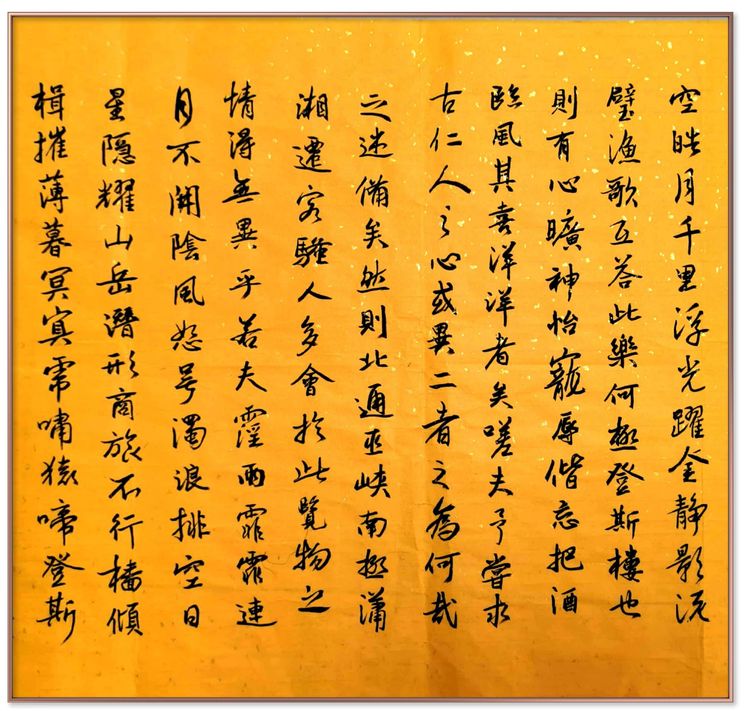 空皓月千里浮光躍金静影沉
璧漁歌互答此樂何極登斯樓也
則有心曠神怡寵辱偕忘把酒
臨風其喜洋洋者矣嗟夫予嘗求
古仁人之心或異二者之為何哉
之述備矣然則北通巫峽南極瀟
湘遷客騷人多會於此覽物之
情得無異乎若夫霪雨霏霏連
月不開陰風怒号濁浪排空日
星隱耀山岳潛形商旅不行檣傾
楫摧薄暮冥冥虎嘯猿啼登斯